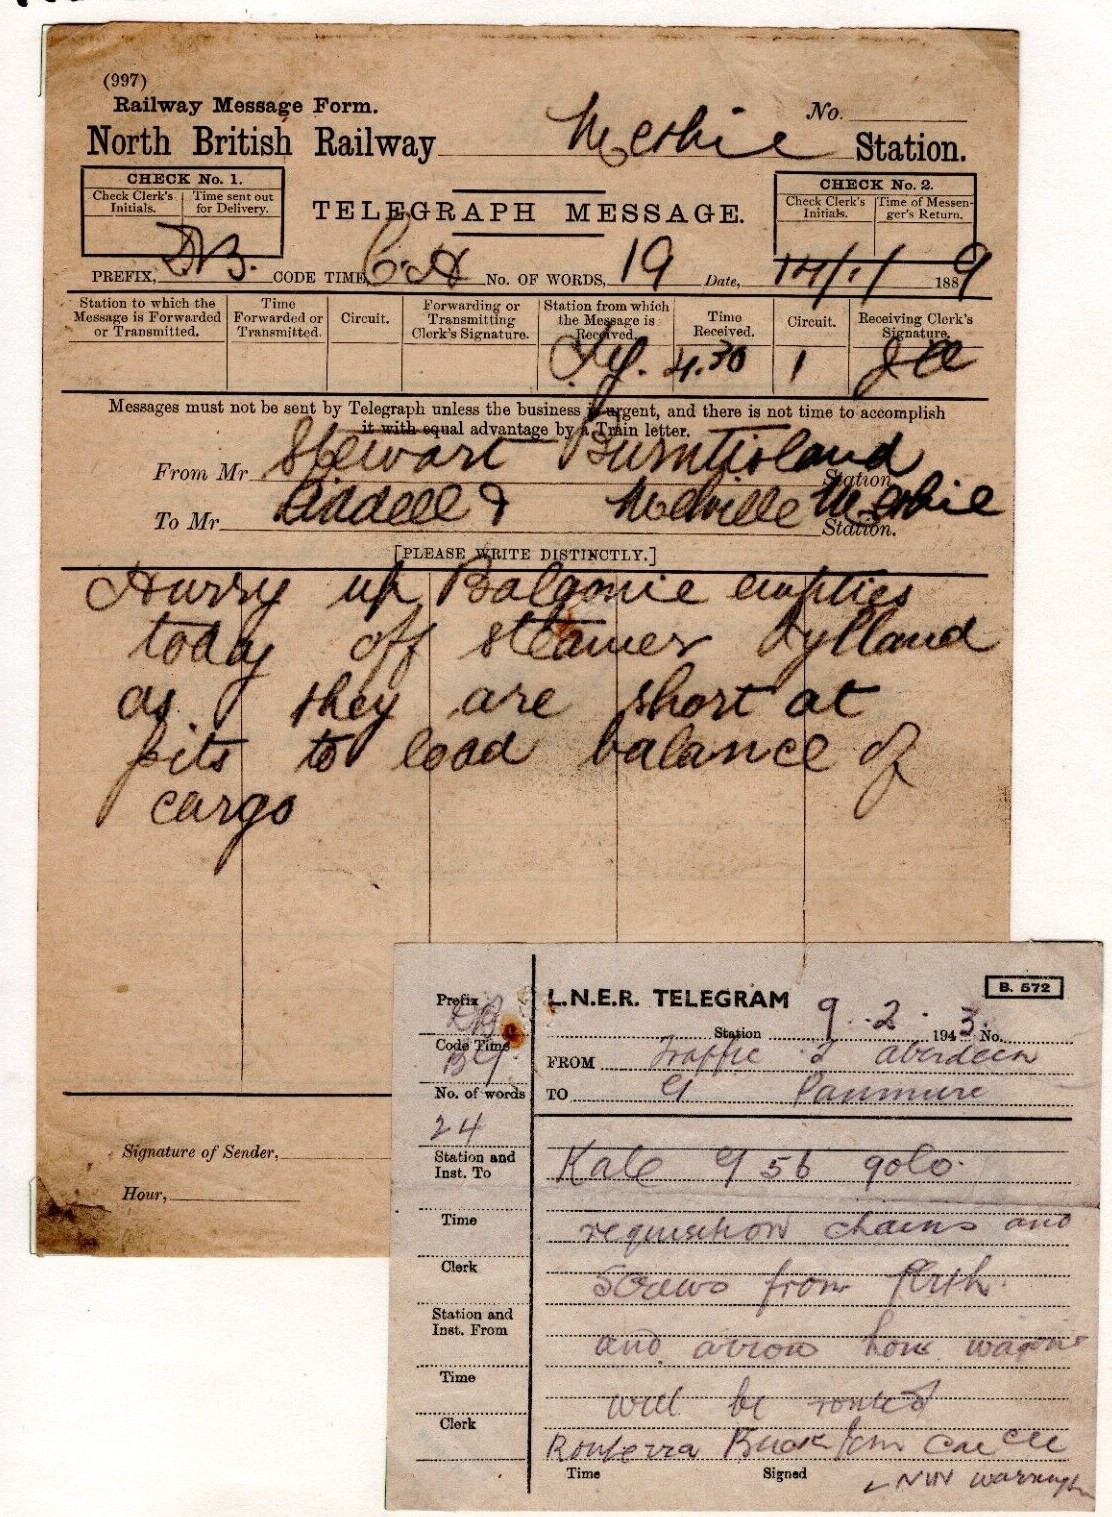 (997)
Railway Message Form.
No.
North British Railway Station.
CHECK No. 1.
Check Clerk's Initials. Time sent out for Delivery.
TELEGRAPH MESSAGE.
CHECK No. 2.
Check Clerk's Initials. Time of Messenger's Return.
PREFIX, DB. CODE TIME, No. OF WORDS, 19 Date, 14/1/ 1889
Station to which the Message is Forwarded or Transmitted. Time Forwarded or Transmitted. Circuit. Forwarding or Transmitting Clerk's Signature. Station from which the Message is Received. Time Received. Circuit. Receiving Clerk's Signature.
4.30 1
Messages must not be sent by Telegraph unless the business is urgent, and there is not time to accomplish
it with equal advantage by a Train letter.
From Mr Stewart Burntisland Station
To Mr Liddell & Melville Station.
[PLEASE WRITE DISTINCTLY.]
Hurry up Balgonie empties
today off steamer Lylland
as they are short at
pits to load balance of
cargo
Signature of Sender,
Hour,
L.N.E.R. TELEGRAM
B. 572
Station 9.2. 1943. No.
FROM Traffic Aberdeen
TO Panmure
Prefix
Code Time
No. of words
24
Station and Inst. To
Time
Clerk
Station and Inst. From
Time
Clerk
Kale 956 golo.
requisition chains and
screws from Perth.
and how wagons
will be routed
Time Signed